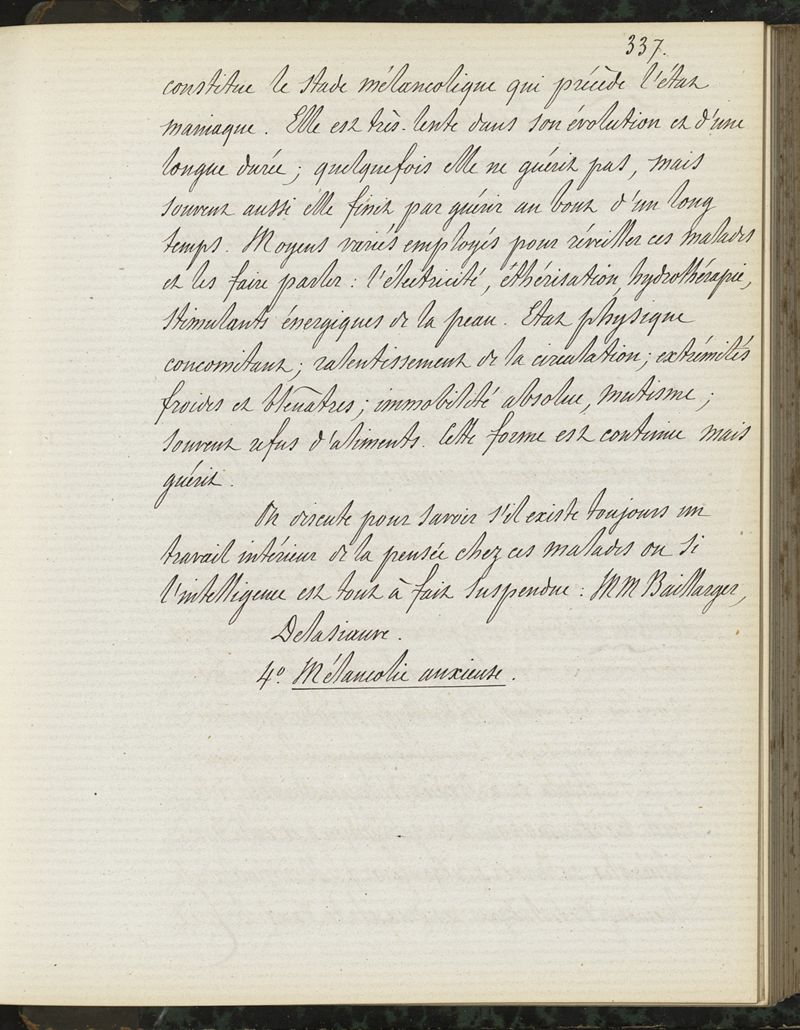 337.
constitue le stade mélancolique qui précède l'état
maniaque. Elle est très-lente dans son évolution et d'une
longue durée ; quelquefois elle ne guérit pas, mais
souvent aussi elle finit par guérir au bout d'un long
temps. Moyens variés employés pour réveiller ces malades
et les faire parler : l'électricité, éthérisation, hydrothérapie,
stimulants énergiques de la peau. Etat physique
concomitant ; ralentissement de la circulation ; extrémités
froides et bleuâtres ; immobilité absolue, mutisme ;
souvent refus d'aliments. Cette forme est continue mais
guérit.
On discute pour savoir s'il existe toujours un
travail intérieur de la pensée chez ces malades ou si
l'intelligence est tout à fait suspendue : MM Baillarger,
Delasiauve.
4º. Mélancolie anxieuse.